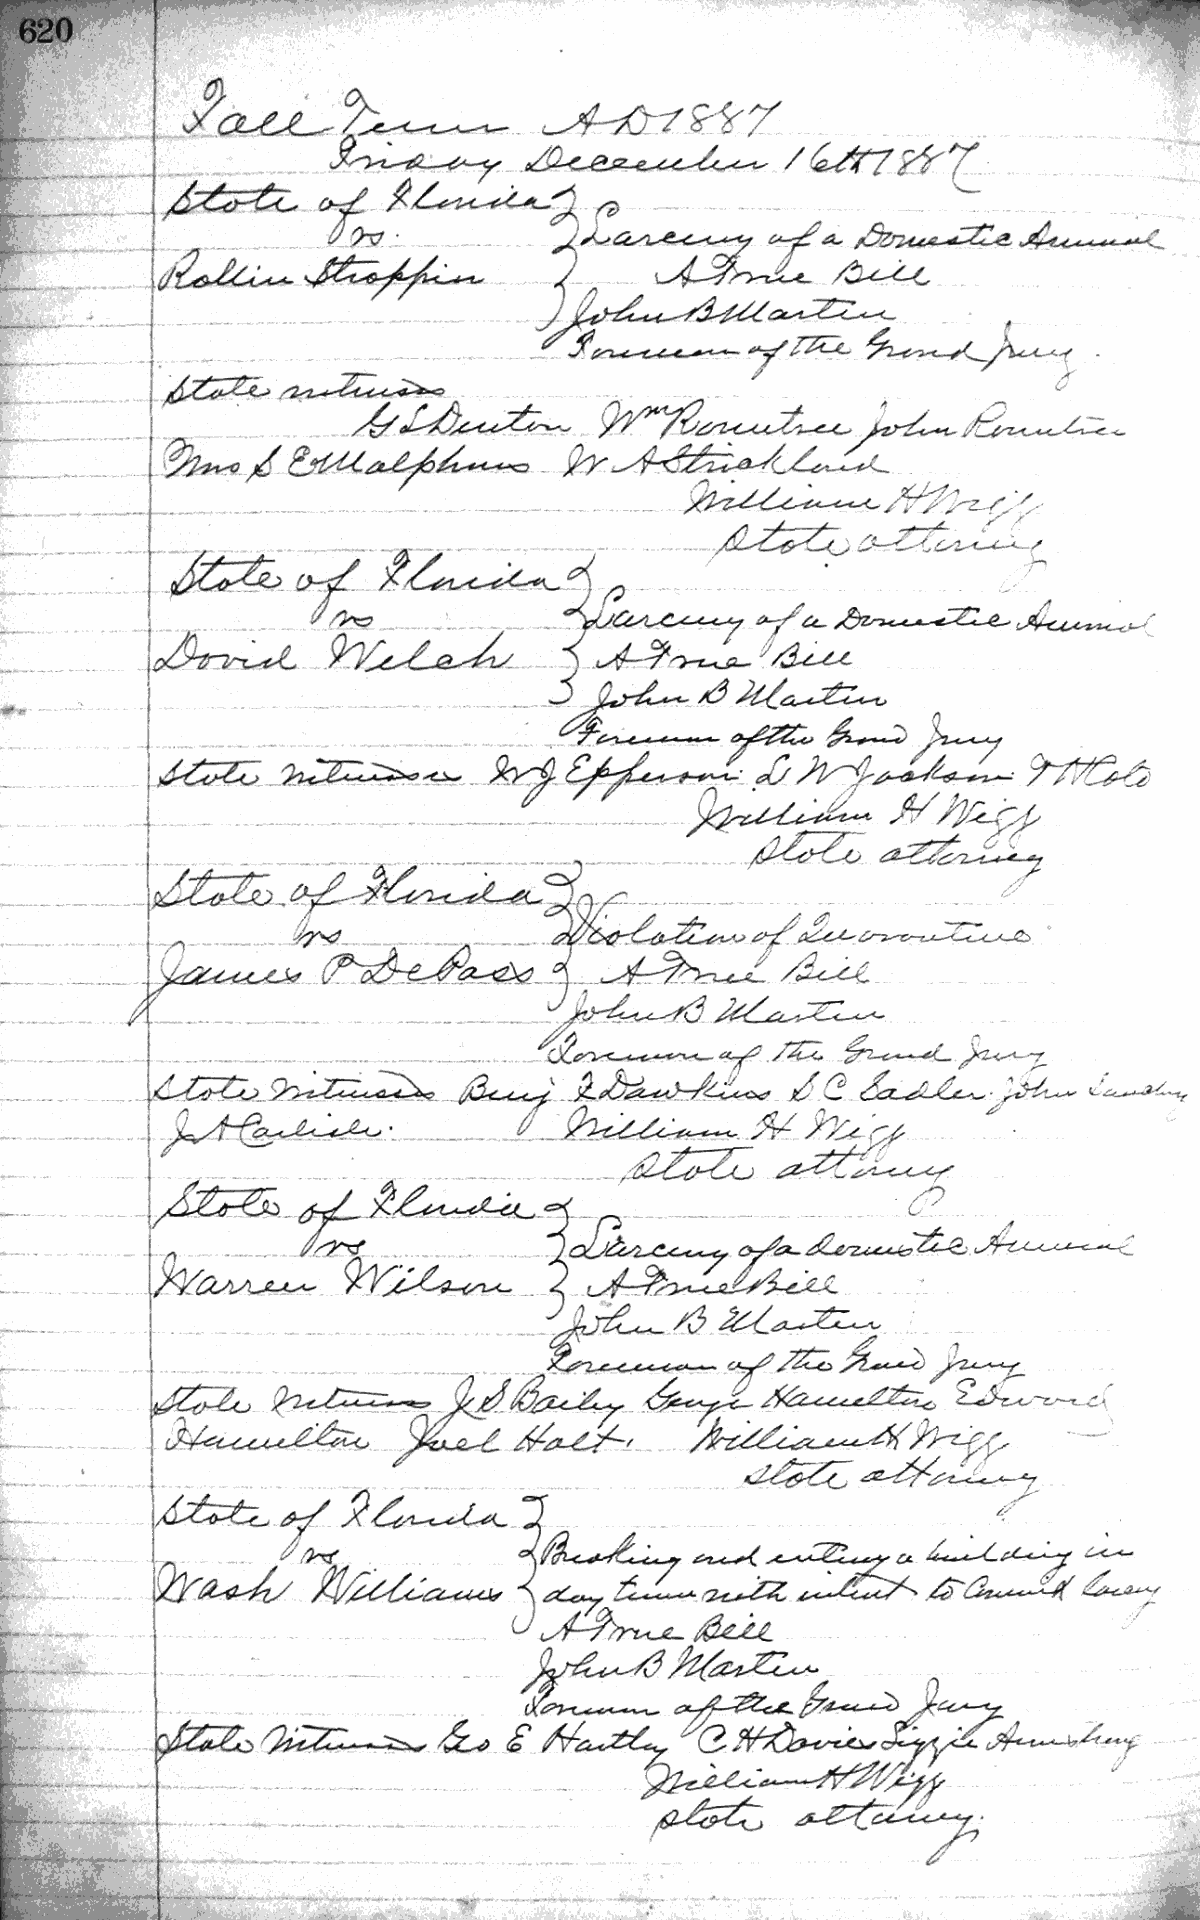 620
Fall Term AD 1887
Friday December 16th 1887
State of Florida
vs.
Larceny of a Domestic Animal
Rollin Stroppin
A True Bill
John B Martin
Foreman of the Grand Jury
State witnesses
G S Denton Wm Rountree John Rountree
Mrs S E Malphurs W A Strickland
William H Wigg
State attorney
State of Florida
vs
Larceny of a Domestic Animal
David Welch
A True Bill
John B Martin
Foreman of the Grand Jury
State witnesses W J Epperson L W Jackson T H Cato
William H Wigg
State attorney
State of Florida
vs
Violation of Quarantine
James P DePass
A True Bill
John B Martin
Foreman of the Grand Jury
State Witnesses Benj F Dawkins S C Sadler John
J A Carlisle.
William H Wigg
State attorney
State of Florida
vs
Larceny of a domestic Animal
Warren Wilson
A True Bill
John B Martin
Foreman of the Grand Jury
State Witnesses J S Bailey George Hamilton Edward
Hamilton Joel Halt. William H Wigg
State attorney
State of Florida
vs
Breaking and entering a building in
Wash Williams
day time with intent to Commit
A True Bill
John B Martin
Foreman of the Grand Jury
State Witnesses Geo E Hartley C H Davies Lizzie Armstrong
William H Wigg
State attorney.